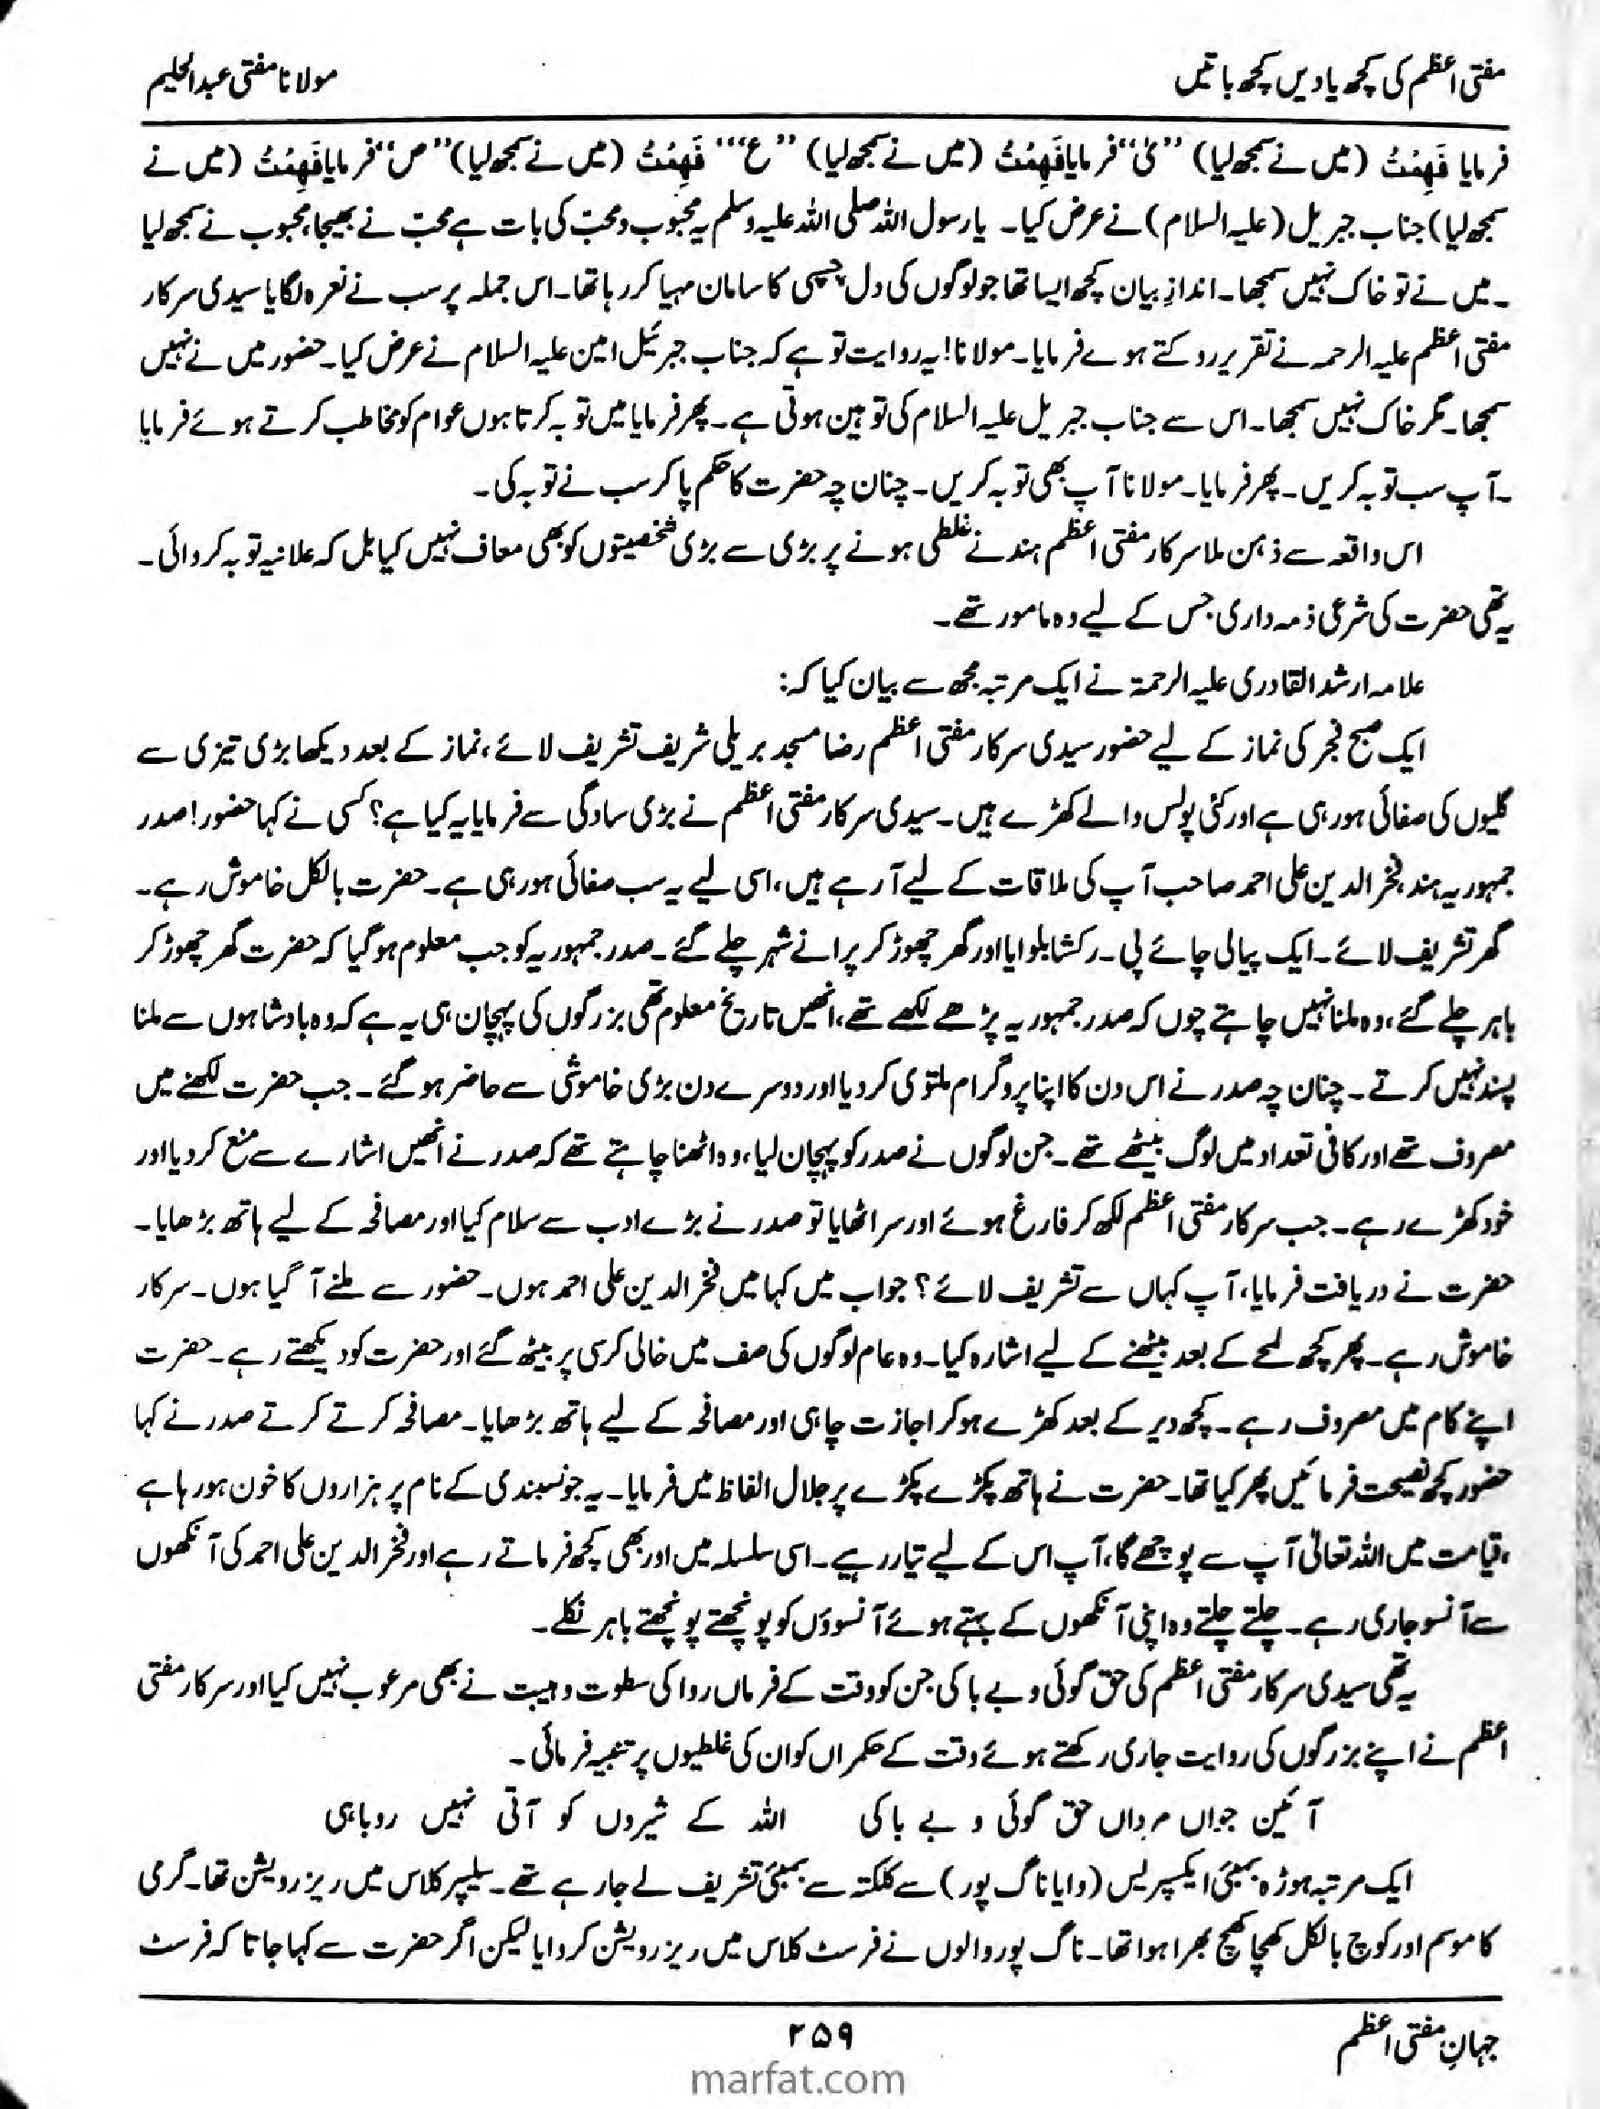 مفتی اعظم کی کچھ یادیں کچھ باتیں
مولانا مفتی عبدالحلیم
فرمایا فَهِمْتُ (میں نے سمجھ لیا) ”یٰ“ فرمایا فَهِمْتُ (میں نے سمجھ لیا) ”ع“ فَهِمْتُ (میں نے سمجھ لیا) ”ص“ فرمایا فَهِمْتُ (میں نے
سمجھ لیا) جناب جبریل (علیہ السلام) نے عرض کیا۔ یا رسول اللہ صلی اللہ علیہ وسلم یہ محبوب و محبّ کی بات ہے محبّ نے بھیجا، محبوب نے سمجھ لیا
۔میں نے تو خاک نہیں سمجھا۔ اندازِ بیان کچھ ایسا تھا جو لوگوں کی دل چسپی کا سامان مہیا کر رہا تھا۔ اس جملہ پر سب نے نعرہ لگایا سیدی سرکار
مفتی اعظم علیہ الرحمہ نے تقریر روکتے ہوے فرمایا۔ مولانا! یہ روایت تو ہے کہ جناب جبرئیل امین علیہ السلام نے عرض کیا۔ حضور میں نے نہیں
سمجھا۔ مگر خاک نہیں سمجھا۔ اس سے جناب جبریل علیہ السلام کی توہین ہوتی ہے۔ پھر فرمایا میں توبہ کرتا ہوں عوام کو مخاطب کرتے ہوئے فرمایا
۔آپ سب توبہ کریں۔ پھر فرمایا۔ مولانا آپ بھی توبہ کریں۔ چنان چہ حضرت کا حکم پا کر سب نے توبہ کی۔
اس واقعہ سے ذہن ملا سرکار مفتی اعظم ہند نے غلطی ہونے پر بڑی سے بڑی شخصیتوں کو بھی معاف نہیں کیا بل کہ علانیہ توبہ کروائی۔
یہ تھی حضرت کی شرعی ذمہ داری جس کے لیے وہ مامور تھے۔
علامہ ارشد القادری علیہ الرحمۃ نے ایک مرتبہ مجھ سے بیان کیا کہ:
ایک صبح فجر کی نماز کے لیے حضور سیدی سرکار مفتی اعظم رضا مسجد بریلی شریف تشریف لائے، نماز کے بعد دیکھا بڑی تیزی سے
گلیوں کی صفائی ہو رہی ہے اور کئی پولس والے کھڑے ہیں۔ سیدی سرکار مفتی اعظم نے بڑی سادگی سے فرمایا یہ کیا ہے؟ کسی نے کہا حضور! صدر
جمہوریہ ہند، فخر الدین علی احمد صاحب آپ کی ملاقات کے لیے آ رہے ہیں، اسی لیے یہ سب صفائی ہو رہی ہے۔ حضرت بالکل خاموش رہے۔
گھر تشریف لائے۔ ایک پیالی چائے پی۔ رکشا بلوایا اور گھر چھوڑ کر پرانے شہر چلے گئے۔ صدر جمہوریہ کو جب معلوم ہو گیا کہ حضرت گھر چھوڑ کر
باہر چلے گئے، وہ ملنا نہیں چاہتے چوں کہ صدر جمہوریہ پڑھے لکھے تھے، انھیں تاریخ معلوم تھی بزرگوں کی پہچان ہی یہ ہے کہ وہ بادشاہوں سے ملنا
پسند نہیں کرتے۔ چنان چہ صدر نے اس دن کا اپنا پروگرام ملتوی کر دیا اور دوسرے دن بڑی خاموشی سے حاضر ہو گئے۔ جب حضرت لکھنے میں
مصروف تھے اور کافی تعداد میں لوگ بیٹھے تھے۔ جن لوگوں نے صدر کو پہچان لیا، وہ اٹھنا چاہتے تھے کہ صدر نے انھیں اشارے سے منع کر دیا اور
خود کھڑے رہے۔ جب سرکار مفتی اعظم لکھ کر فارغ ہوئے اور سر اٹھایا تو صدر نے بڑے ادب سے سلام کیا اور مصافحہ کے لیے ہاتھ بڑھایا۔
حضرت نے دریافت فرمایا، آپ کہاں سے تشریف لائے؟ جواب میں کہا میں فخر الدین علی احمد ہوں۔ حضور سے ملنے آ گیا ہوں۔ سرکار
خاموش رہے۔ پھر کچھ لمحے کے بعد بیٹھنے کے لیے اشارہ کیا۔ وہ عام لوگوں کی صف میں خالی کرسی پر بیٹھ گئے اور حضرت کو دیکھتے رہے۔ حضرت
اپنے کام میں مصروف رہے۔ کچھ دیر کے بعد کھڑے ہو کر اجازت چاہی اور مصافحہ کے لیے ہاتھ بڑھایا۔ مصافحہ کرتے کرتے صدر نے کہا
حضور کچھ نصیحت فرمائیں پھر کیا تھا۔ حضرت نے ہاتھ پکڑے پکڑے پر جلال الفاظ میں فرمایا۔ یہ جو نسبندی کے نام پر ہزاروں کا خون ہو رہا ہے
،قیامت میں اللہ تعالیٰ آپ سے پوچھے گا، آپ اس کے لیے تیار رہیے۔ اسی سلسلہ میں اور بھی کچھ فرماتے رہے اور فخر الدین علی احمد کی آنکھوں
سے آنسو جاری رہے۔ چلتے چلتے وہ اپنی آنکھوں کے بہتے ہوئے آنسوؤں کو پونچھتے پونچھتے باہر نکلے۔
یہ تھی سیدی سرکار مفتی اعظم کی حق گوئی و بے باکی جن کو وقت کے فرماں روا کی سطوت و ہیبت نے بھی مرعوب نہیں کیا اور سرکار مفتی
اعظم نے اپنے بزرگوں کی روایت جاری رکھتے ہوئے وقت کے حکمراں کو ان کی غلطیوں پر تنبیہ فرمائی۔
آئین جواں مرداں حق گوئی و بے باکی اللہ کے شیروں کو آتی نہیں روباہی
ایک مرتبہ ہوڑہ بمبئی ایکسپریس (وایا ناگ پور) سے کلکتہ سے بمبئی تشریف لے جا رہے تھے۔ سلیپر کلاس میں ریزرویشن تھا۔ گرمی
کا موسم اور کوچ بالکل کھچا کھچ بھرا ہوا تھا۔ ناگ پور والوں نے فرسٹ کلاس میں ریزرویشن کروایا لیکن اگر حضرت سے کہا جاتا کہ فرسٹ
جہانِ مفتی اعظم
۲۵۹
marfat.com